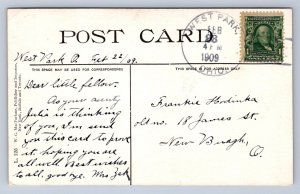 POST CARD
WEST PARK
FEB
23
4 PM
1909
OHIO.
West Park O. Feb 22 09.
THIS SPACE MAY BE USED FOR CORRESPONDENCE
Dear little fellow.
As your aunty
Julia is thinking
of you, I'm send
you this card to prove
it, hoping you are
all well. Best wishes
to all, good bye. Mrs.
Frankie Hodinka
old no. 18 James St.
New Burgh,
O.